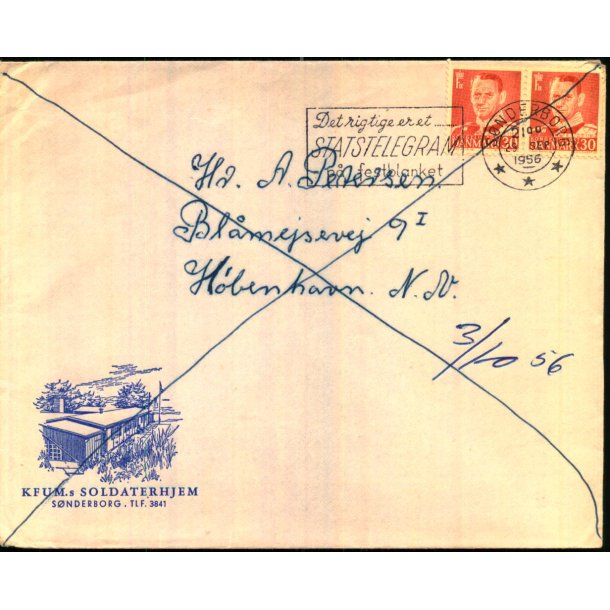 Det rigtige er et
STATSTELEGRAM
på festblanket
SØNDERBORG
1956
30
30
Hr. A. Petersen.
Blåmejsevej 9 I
København. N.V.
3/10 56
KFUM.s SOLDATERHJEM
SØNDERBORG . TLF. 3841